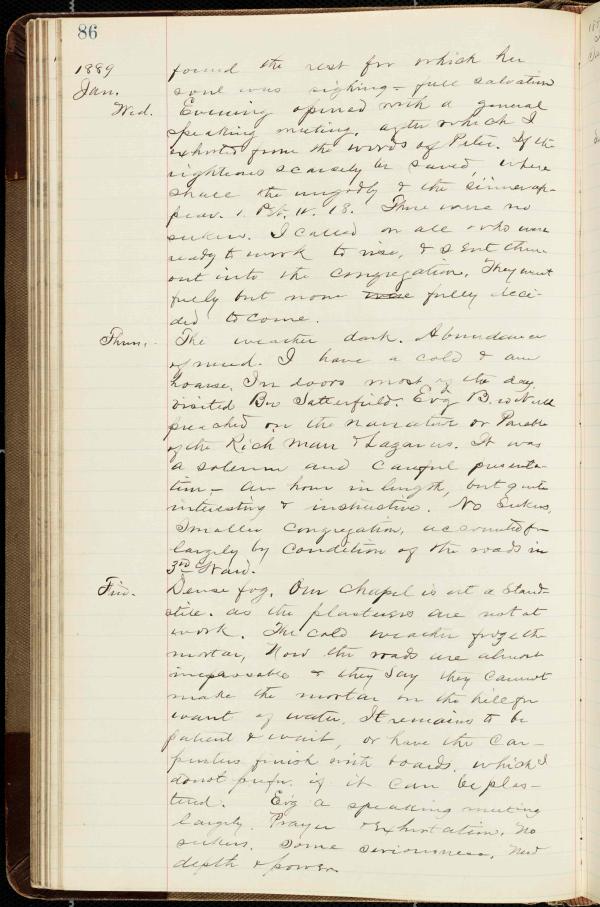 86
1889 found the rest for which her
Jan. soul was sighing – full salvation
Wed. Evening opened with a general
speaking meeting, after which I
exhorted from the words of Peter. If the
righteous scarsely be saved, where
shall the ungodly & the sinner ap-
pear. 1. Pet. IV. 18. There were no
seekers. I called on all who were
ready to work to rise, & sent them
out into the congregation. They went
freely but none were fully deci-
ded to come.
Thurs. The weather dark. Abundance
of mud. I have a cold & am
hoarse. In doors most of the day.
Visited Bro Satterfield. Evg B.
preached on the narrative or Parable
of the Rich Man & Lazarus. It was
a solemn and careful presenta-
tion – an hour in length, but quite
interesting & instructive. No Seekers,
Smaller congregation, accounted for
largely by condition of the roads in
3rd Ward.
Fri. Dense fog. Our chapel is at a stand-
still. as the plasterers are not at
work. The cold weather froze the
mortar, Now the roads are almost
impassable & they say they cannot
make the mortar on the hill for
want of water. It remains to be
patient & wait, or have the Car-
penters finish with boards. which I
do not prefer, if it can be plas-
tered. Evg a speaking meeting
largely. Prayer & Exhortation. No
seekers. Some seriousness. Need
depth & power.